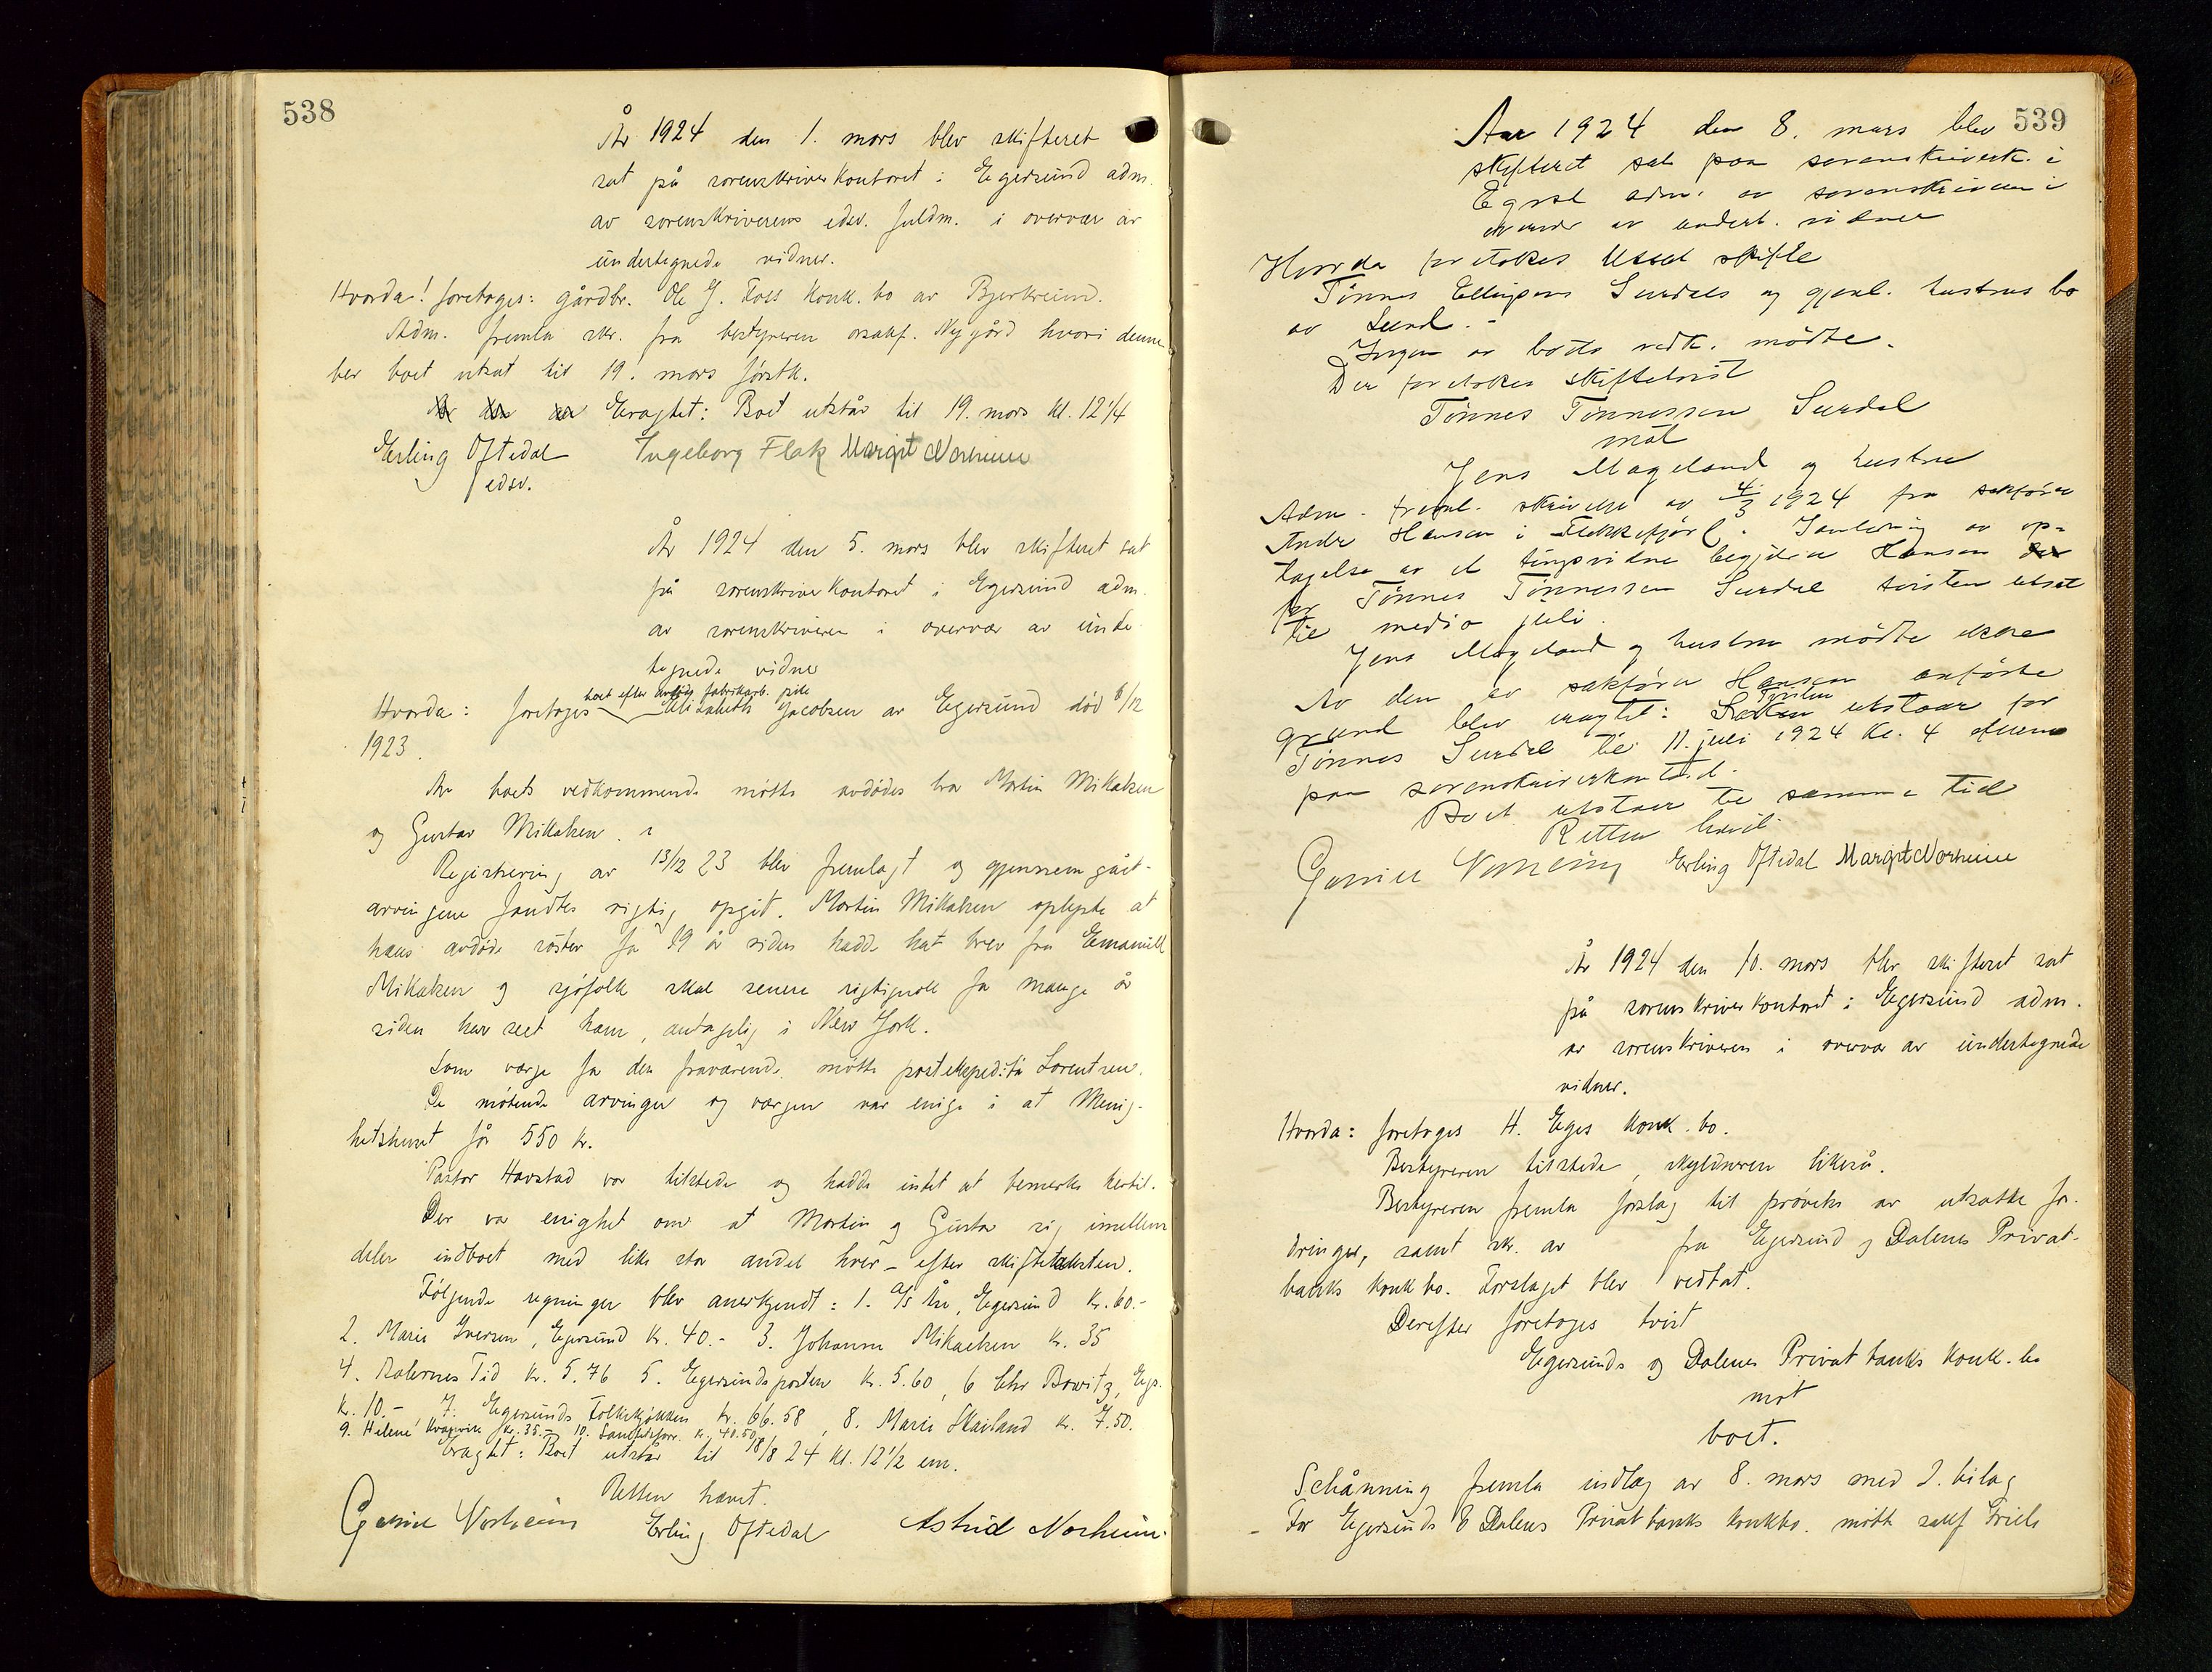 538
År 1924 den 1. mars blev skifteret
sat på sorenskriverkontoret i Egersund adm.
av sorenskriverens edsv. fuldm. i overvær av
undertegnede vidner.
Hvorda! foretoges: gårdbr. Ole J. Foss konk. bo av Bjerkreim.
Adm. fremla skr. fra bestyreren orsakf. Nygård hvori denne
ber boet utsat til 19. mars førstk.
Eragtet: Boet utstår til 19. mars kl. 12 1/4
Erling Oftedal Ingeborg Flak Margit Norheim
edsv.
År 1924 den 5. mars blev skifteret sat
på sorenskriverkontoret i Egersund adm.
av sorenskriveren i overvær av under
tegnede vidner
boet efter avdøde fabrikarb. pike
Hvorda: foretoges Elisabeth Jacobsen av Egersund død 6/12
1923.
Av boets vedkommende møtte avdødes bror Martin Mikalsen
og Gustav Mikalsen.
Registrering av 13/12 23 blev fremlagt og gjennemgåt.
arvingene fandtes rigtig opgit. Martin Mikalsen oplyste at
hans avdøde søster for 19 år siden hadde hat brev fra Emanuel
Mikalsen og sjøfolk skal senere rigtignok for mange år
siden har seet ham, antagelig i New York.
Som værge for den fraværende møtte postekspeditør Lorentzen.
De møtende arvinger og værgen var enige i at Menig-
hetshuset får 550 kr.
Pastor Havstad var tilstede og hadde intet at bemerke hertil.
Der var enighet om at Martin og Gustav sig imellem
deler indboet med like stor andel hver - efter skiftetaksten.
Følgende regninger blev anerkjendt: 1. A/S Egersund kr. 60.-
2. Marie Iversen, Egersund kr. 40.- 3. Johanne Mikaelsen kr. 35
4. Dalernes Tid kr. 5.76 5. Egersundsposten kr. 5.60, 6 Chr Bowitz, Egs.
kr. 10.- 7. Egersunds Folkekjøkken kr. 66.58, 8. Marie Skailand kr. 7.50.
9. Helene kr. 35.- 10. kr. 40.50
Eragtet: Boet utstår til 18/8 24 kl. 12 1/2 em.
Retten hævet.
Norheim Erling Oftedal Astrid Norheim.
539
Aar 1924 den 8. mars blev
skifteret sat paa sorenskriverk. i
Egrsd adm. av sorenskriveren i
overvær av undert. vidner
Hvorda foretokes utsat skifte
Tønnes Ellingsens Surdals og gjenl. hustrus bo
av Lund.-
Ingen av boets vedk. mødte.
Der foretokes skiftetvist
Tønnes Tønnessen Surdal
mot
Jens Mageland og hustru
Adm. freml. skrivelse av 4/3 1924 fra sakfører
Andr Hansen i Flekkefjord. I anledning av op-
tagelse av et tingsvidne begjærer Hansen
for Tønnes Tønnessen Surdal tvisten utsat
til medio juli.
Jens Mageland og hustru mødte ikke
Av den av sakfører Hansen anførte
Tvisten
grund blev eragtet: utstaar for
Tønnes Surdal til 11. juli 1924 kl. 4 efterm
paa sorenskriverkontoret.
Boet utstaar til samme tid
Retten hævet
Erling Oftedal Margit Norheim
År 1924 den 10. mars blev skifteret sat
på sorenskriverkontoret i Egersund adm.
av sorenskriveren i overvær av undertegnede
vidner.
Hvorda: foretoges H. Eges konk. bo.
Bestyreren tilstede, skyldneren likeså.
Bestyreren fremla forslag til prøvelse av utsatte for-
dringer, samt skr. av fra Egersund og Dalenes Privat-
banks konkbo. Forslaget blev vedtat.
Derefter foretoges tvist
Egersunds og Dalenes Privatbanks konk. bo
mot
boet.
Schånning fremla indlæg av 8. mars med 2. bilag
- For Egersunds & Dalens Privatbanks konkbo. møtte sakf